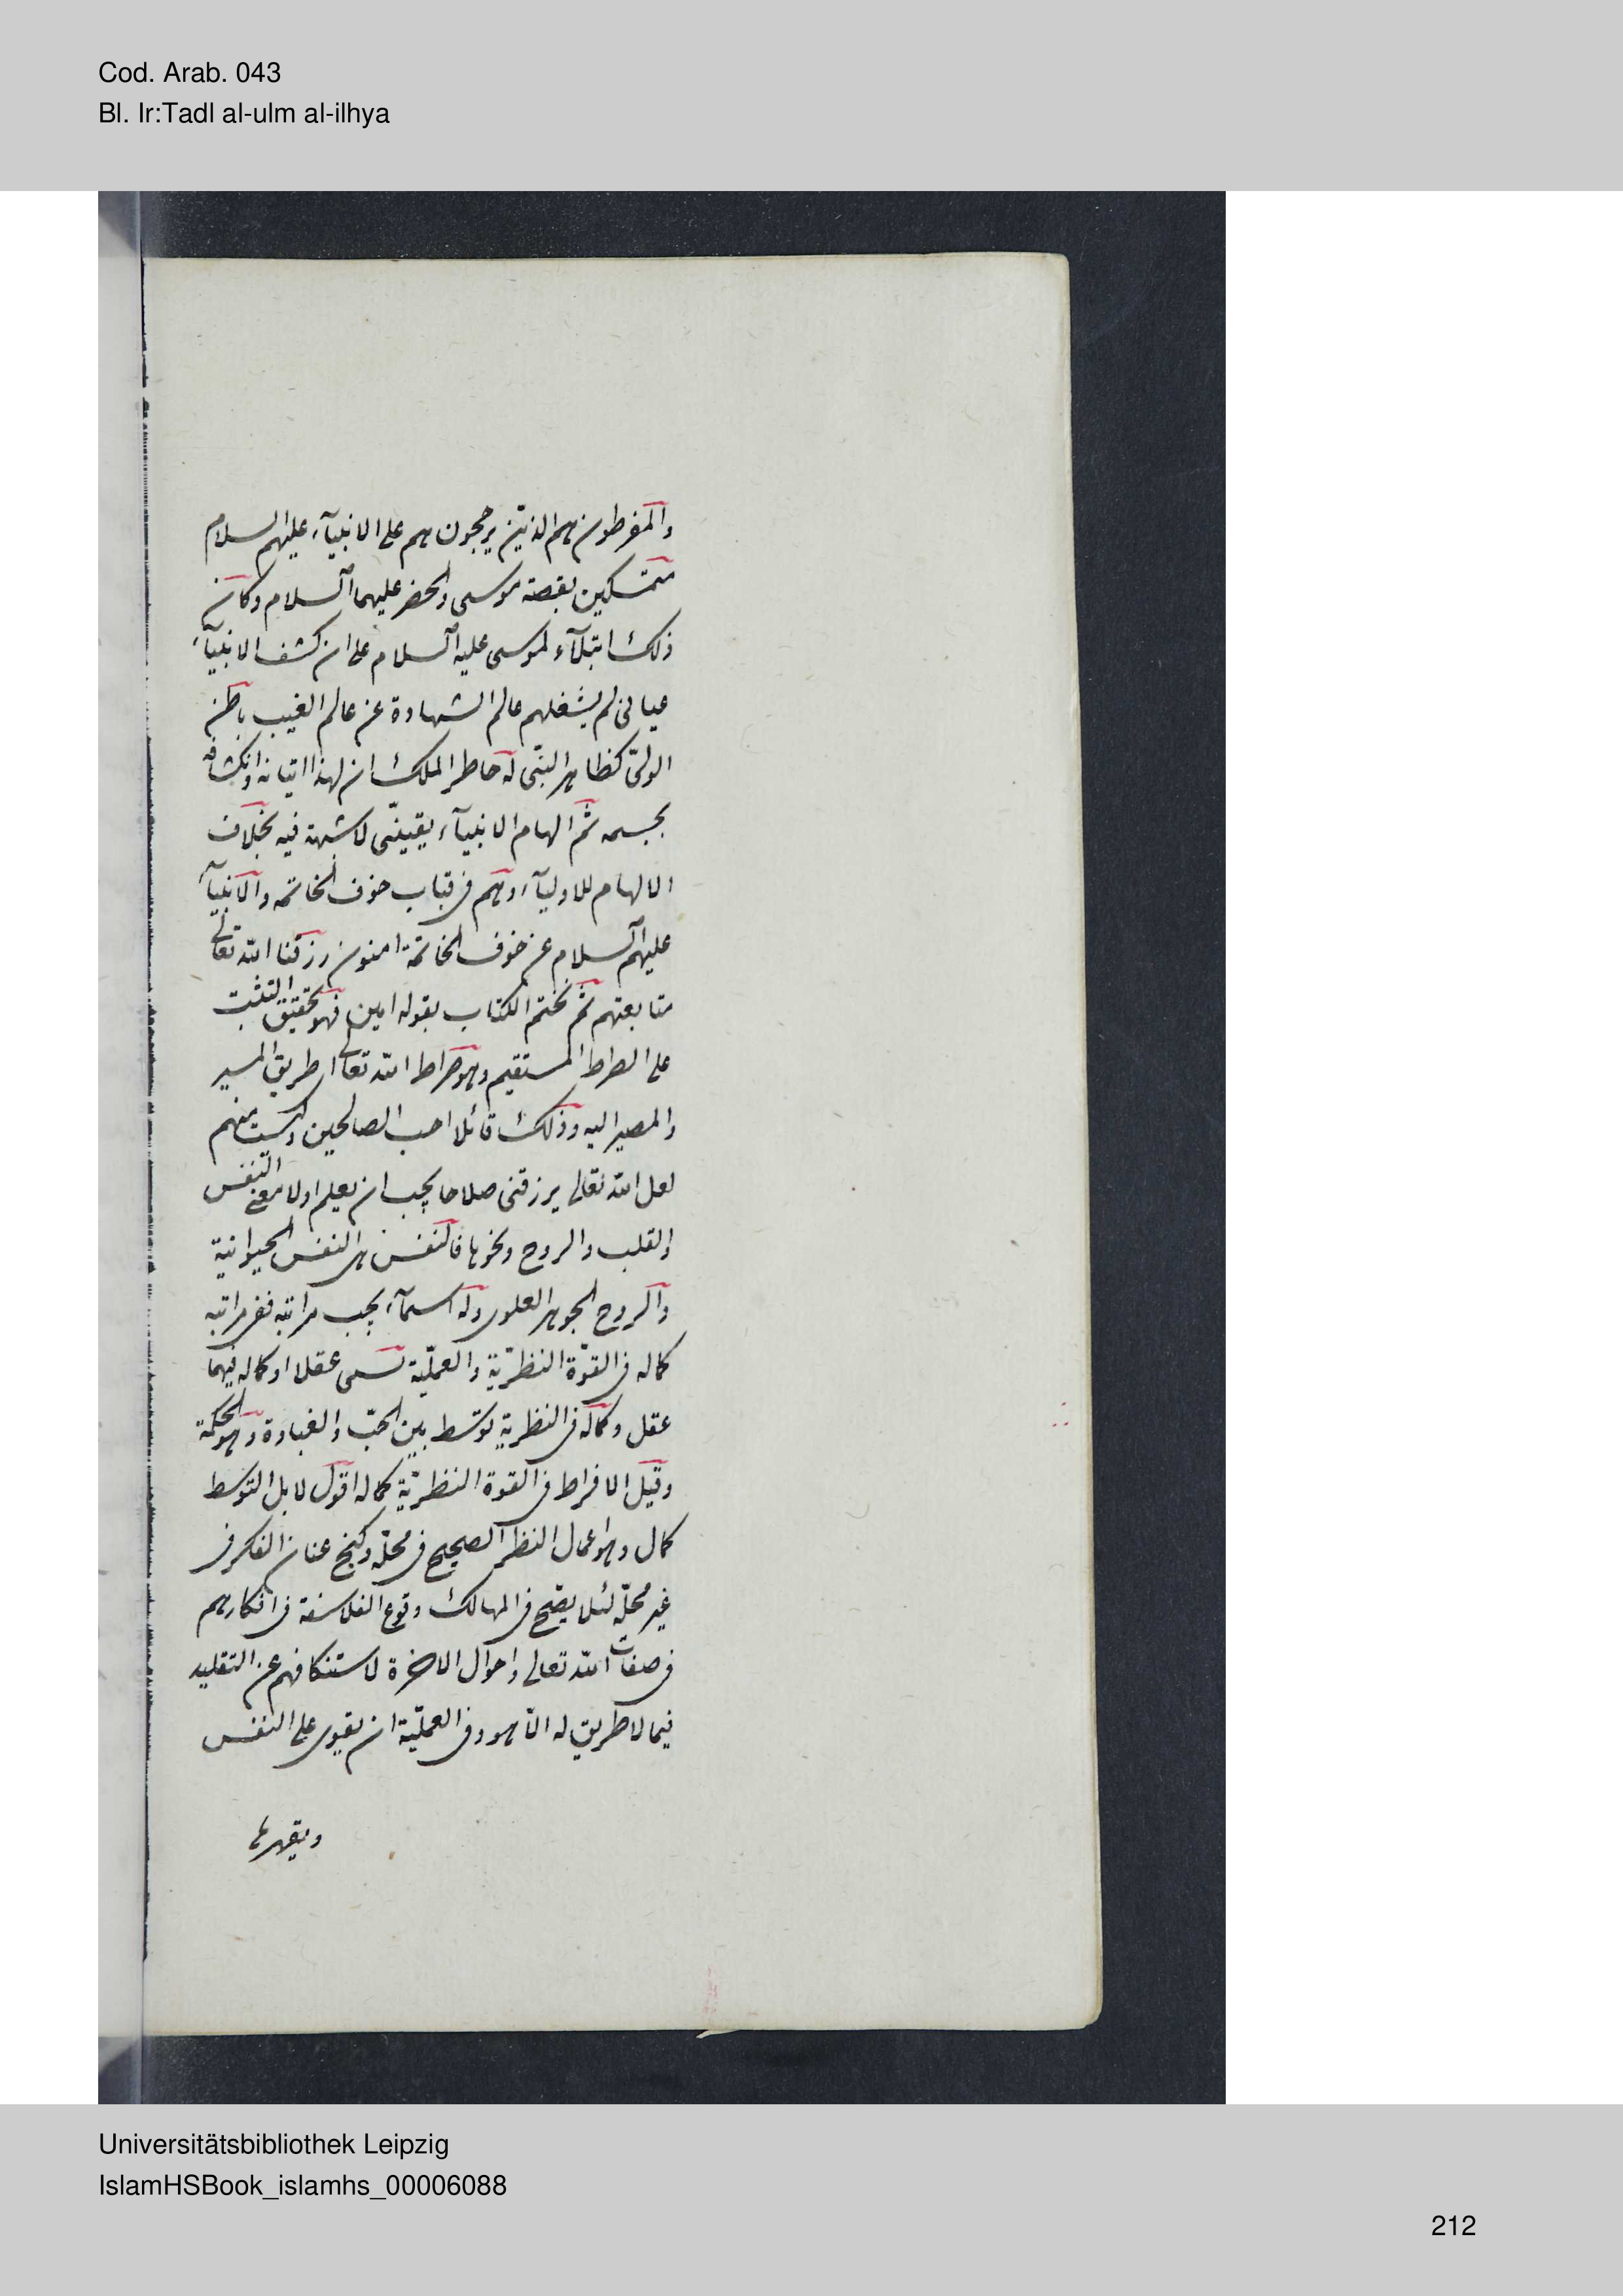 Cod. Arab. 043
Bl. Ir:Tadl al-ulm al-ilhya
والمفرطون هم الذين يرجحون هم على الانبيآء عليهم السلام
متمسكين بقصة موسى والخضر عليهما السلام وكان
ذلك ابتلآء لموسى عليه السلام على ان كشف الانبيآء
عيانى لم يشغلهم عالم الشهادة عن عالم الغيب باطن
الولى كظاهر النبى له خاطر الملك ان لهذا اتيانه وانكشافه
بجسمه ثم الهام الانبيآء يقينى لا شبهة فيه بخلاف
الالهام للاوليآء وهم فى قباب خوف الخاتمه والانبيآء
عليهم السلام عن خوف الخاتمة امنون رزقنا الله تعالى
متابعتهم ثم نختم الكتاب بقوله امين فهو تحقيق التثبت
على الصراط المستقيم وهو صراط الله تعالى طريق المسير
والمصير اليه وذلك قائلا احب الصالحين ولست منهم
لعل الله تعالى يرزقنى صلاحا يجب ان يعلم اولا معنى النفس
والقلب والروح ونحوها فالنفس هى النفس الحيوانية
والروح الجوهر العلوى وله اسمآء بحسب مراتبه ففى مراتبه
كماله فى القوة النظرية والعملية تسمى عقلا او كماله فيهما
عقل وكماله فى النظرية توسط بين الخب والغباوة وهو الحكمة
وقيل الافراط فى القوة النظرية كماله اقول لا بل التوسط
كمال وهو اعمال النظر الصحيح فى محله وكبح عنان الفكر فى
غير محله لئلا يقع فى المهالك وقوع الفلاسفة فى افكارهم
فى صفات الله تعالى واحوال الاخرة لاستنكافهم عن التقليد
فيما لا طريق له الا هو وفى العملية ان يقوى على النفس
ويقهرها
Universitätsbibliothek Leipzig
IslamHSBook_islamhs_00006088
212